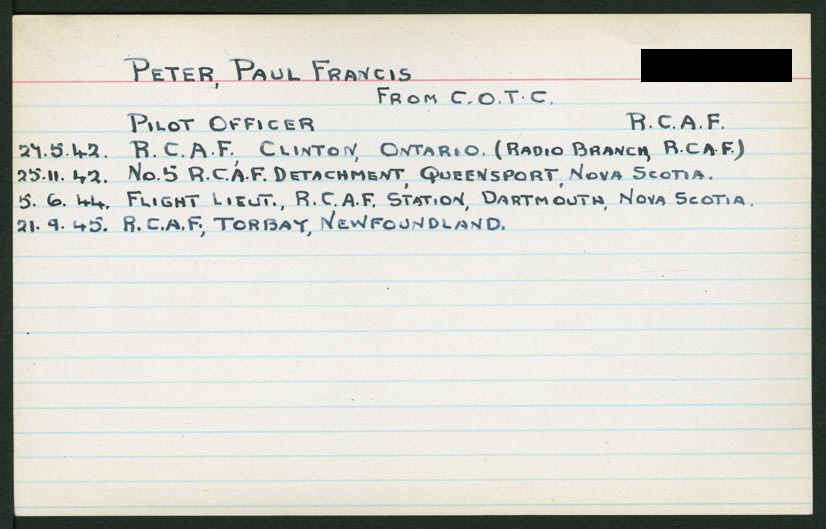 PETER, PAUL FRANCIS
FROM C.O.T.C.
PILOT OFFICER R.C.A.F.
27.5.42. R.C.A.F. CLINTON, ONTARIO. (RADIO BRANCH, R.C.A.F.)
25.11.42. No.5 R.C.A.F. DETACHMENT, QUEENSPORT, NOVA SCOTIA.
5.6.44. FLIGHT LIEUT., R.C.A.F. STATION, DARTMOUTH, NOVA SCOTIA.
21.9.45. R.C.A.F., TORBAY, NEWFOUNDLAND.